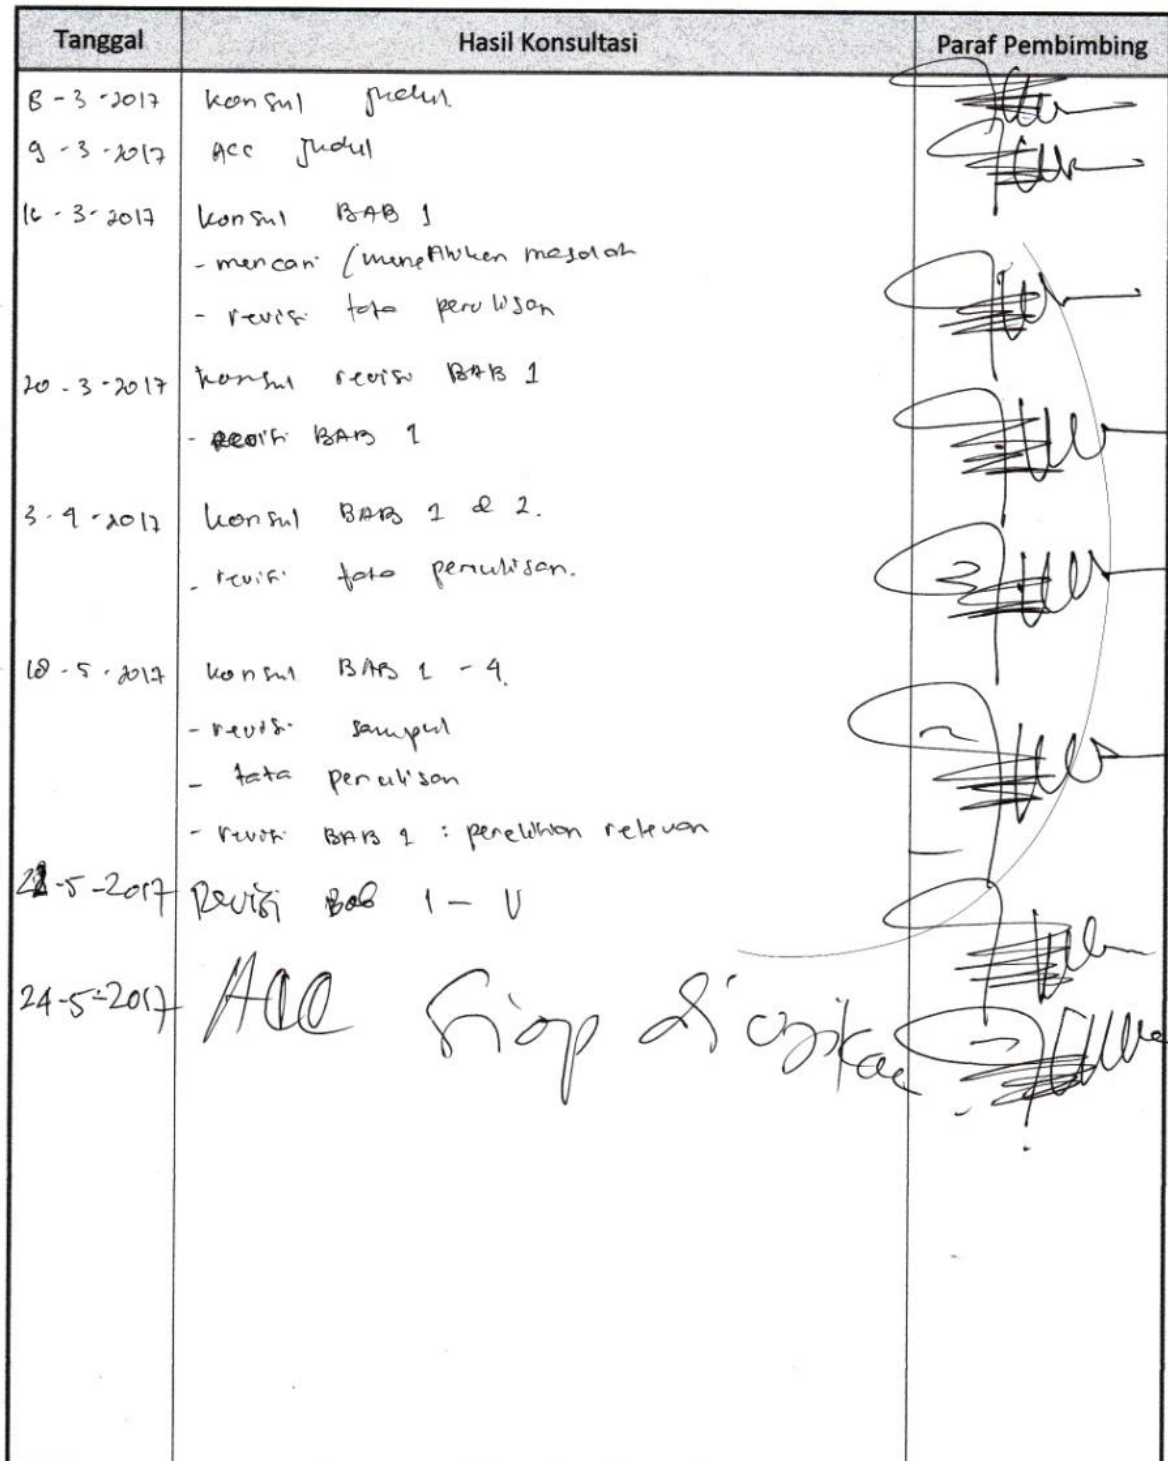 Tanggal Hasil Konsultasi Paraf Pembimbing
8 - 3 - 2017 konsul judul
9 - 3 - 2017 ACC judul
16 - 3 - 2017 konsul BAB 1
- mencari / masalah
- revisi tata penulisan
20 - 3 - 2017 konsul revisi BAB 1
- revisi BAB 1
3 - 4 - 2017 konsul BAB 1 & 2.
- revisi tata penulisan.
18 - 5 - 2017 konsul BAB 1 - 4.
- revisi sampul
- tata penulisan
- revisi BAB 1 : penelitian relevan
22-5-2017 Revisi Bab 1 - V
24-5-2017 ACC Siap di ujikan